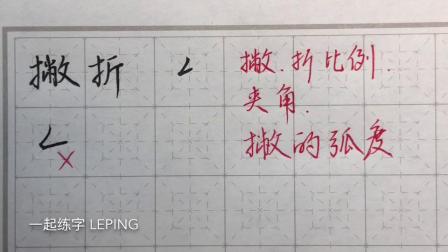 撇折 ㄥ 撇、折比例、
夹角、
ㄥ × 撇的弧度
一起练字 LEPING